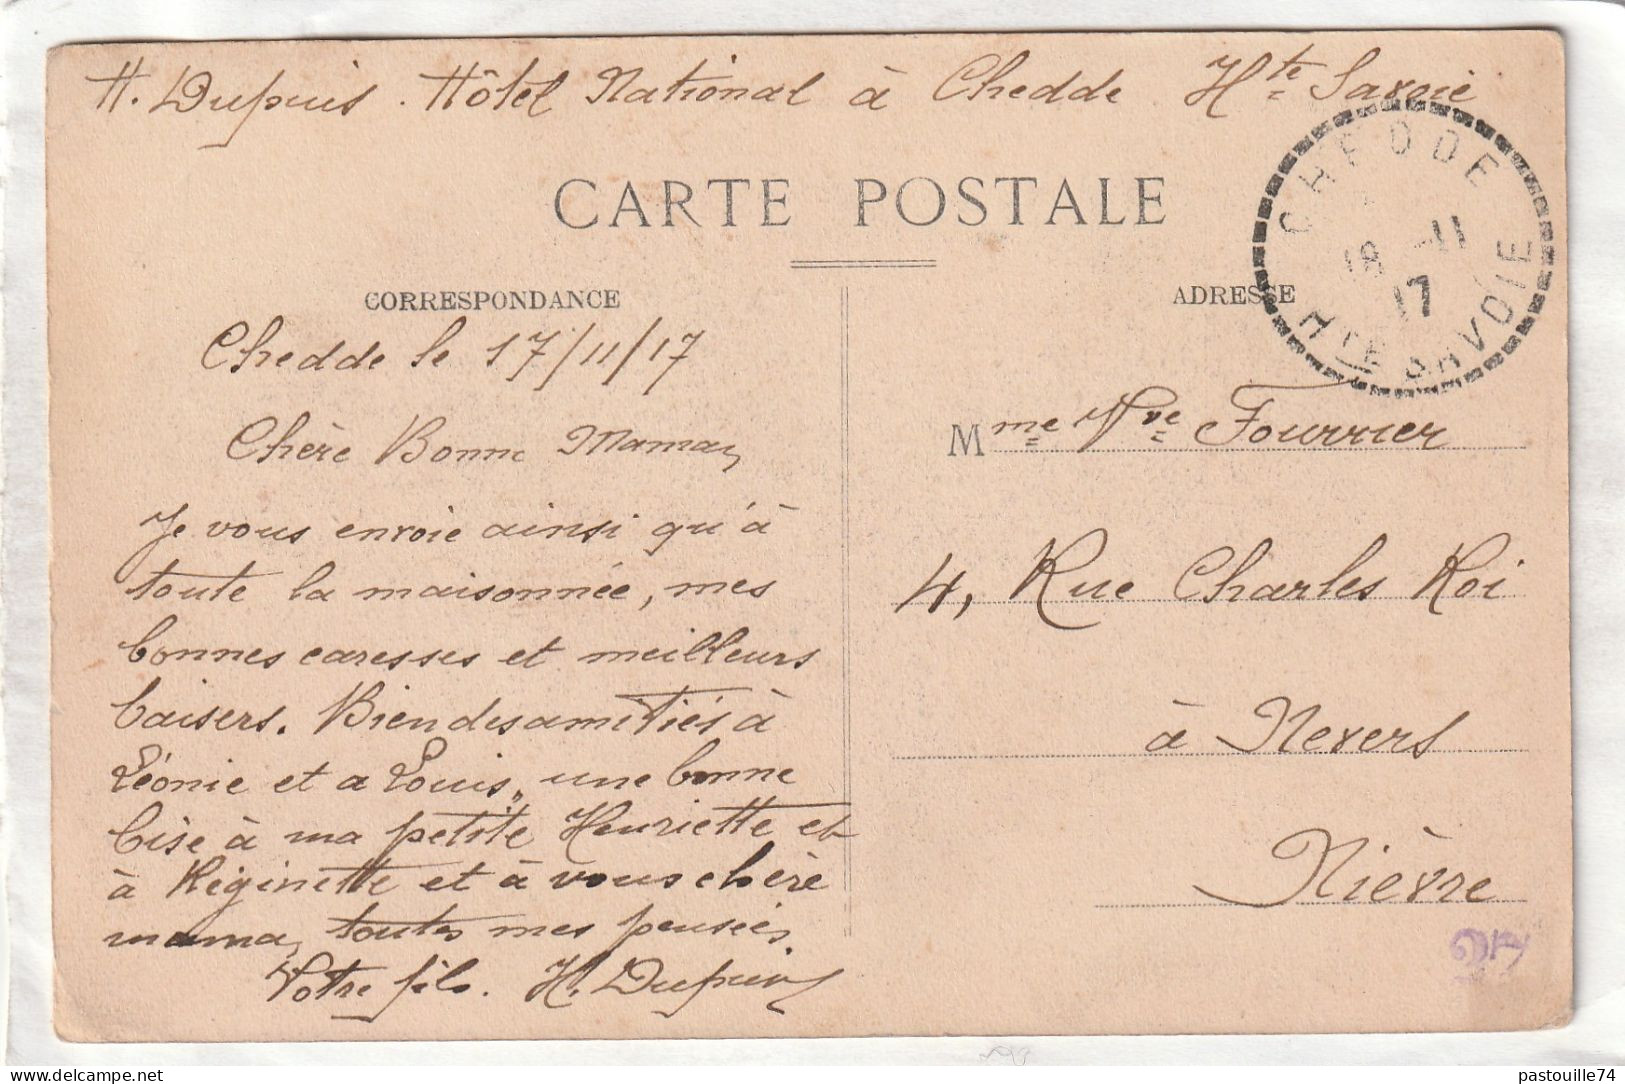 H. Dupuis. Hôtel National à Chedde Hte Savoie
CARTE POSTALE
CHEDDE
18 -11
17
HTE SAVOIE
CORRESPONDANCE
Chedde le 17/11/17
Chère Bonne Maman
Je vous envoie ainsi qu'à
toute la maisonnée, mes
bonnes caresses et meilleurs
baisers. Bien des amitiés à
Léonie et a Louis, une bonne
bise à ma petite Henriette et
à Réginette et à vous chère
maman, toutes mes pensées.
Votre fils. H. Dupuis
ADRESSE
Mme Vve Fourrier
4, Rue Charles Roi
à Nevers
Nièvre
pastouille74